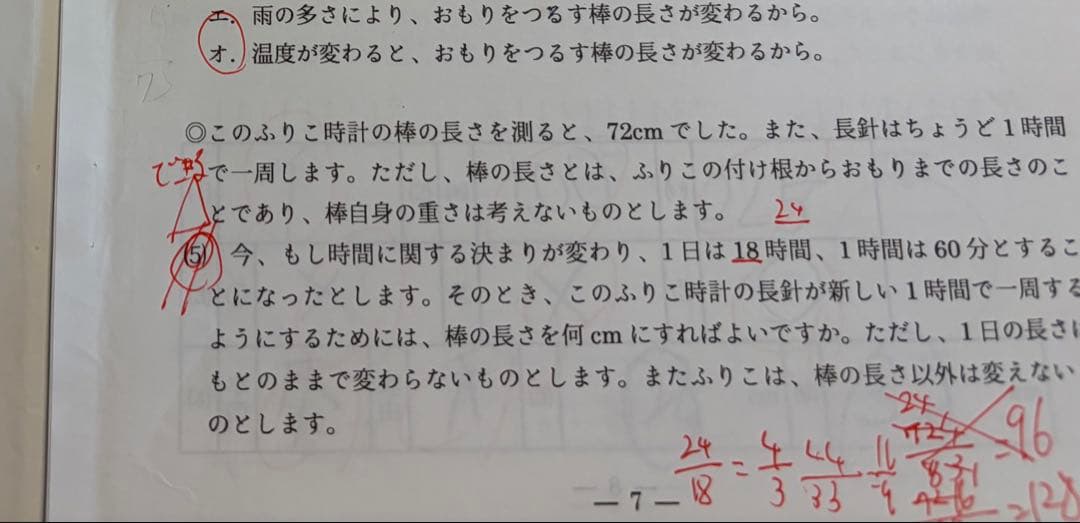 エ．雨の多さにより、おもりをつるす棒の長さが変わるから。
オ．温度が変わると、おもりをつるす棒の長さが変わるから。
◎このふりこ時計の棒の長さを測ると、72cmでした。また、長針はちょうど1時間
で一周します。ただし、棒の長さとは、ふりこの付け根からおもりまでの長さのこ
とであり、棒自身の重さは考えないものとします。 24
⑸ 今、もし時間に関する決まりが変わり、1日は18時間、1時間は60分とするこ
とになったとします。そのとき、このふりこ時計の長針が新しい1時間で一周する
ようにするためには、棒の長さを何cmにすればよいですか。ただし、1日の長さは
もとのままで変わらないものとします。またふりこは、棒の長さ以外は変えない
のとします。
24/18 = 4/3 4×4/3×3 16/9 = 96
= 128
― 7 ―